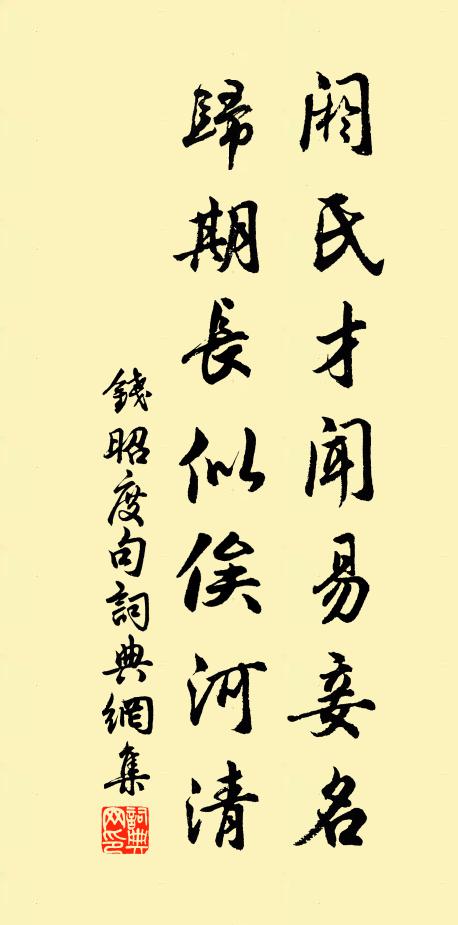 閼氏才聞易妾名
歸期長似俟河清
錢昭度句詞典網集
詞典網印